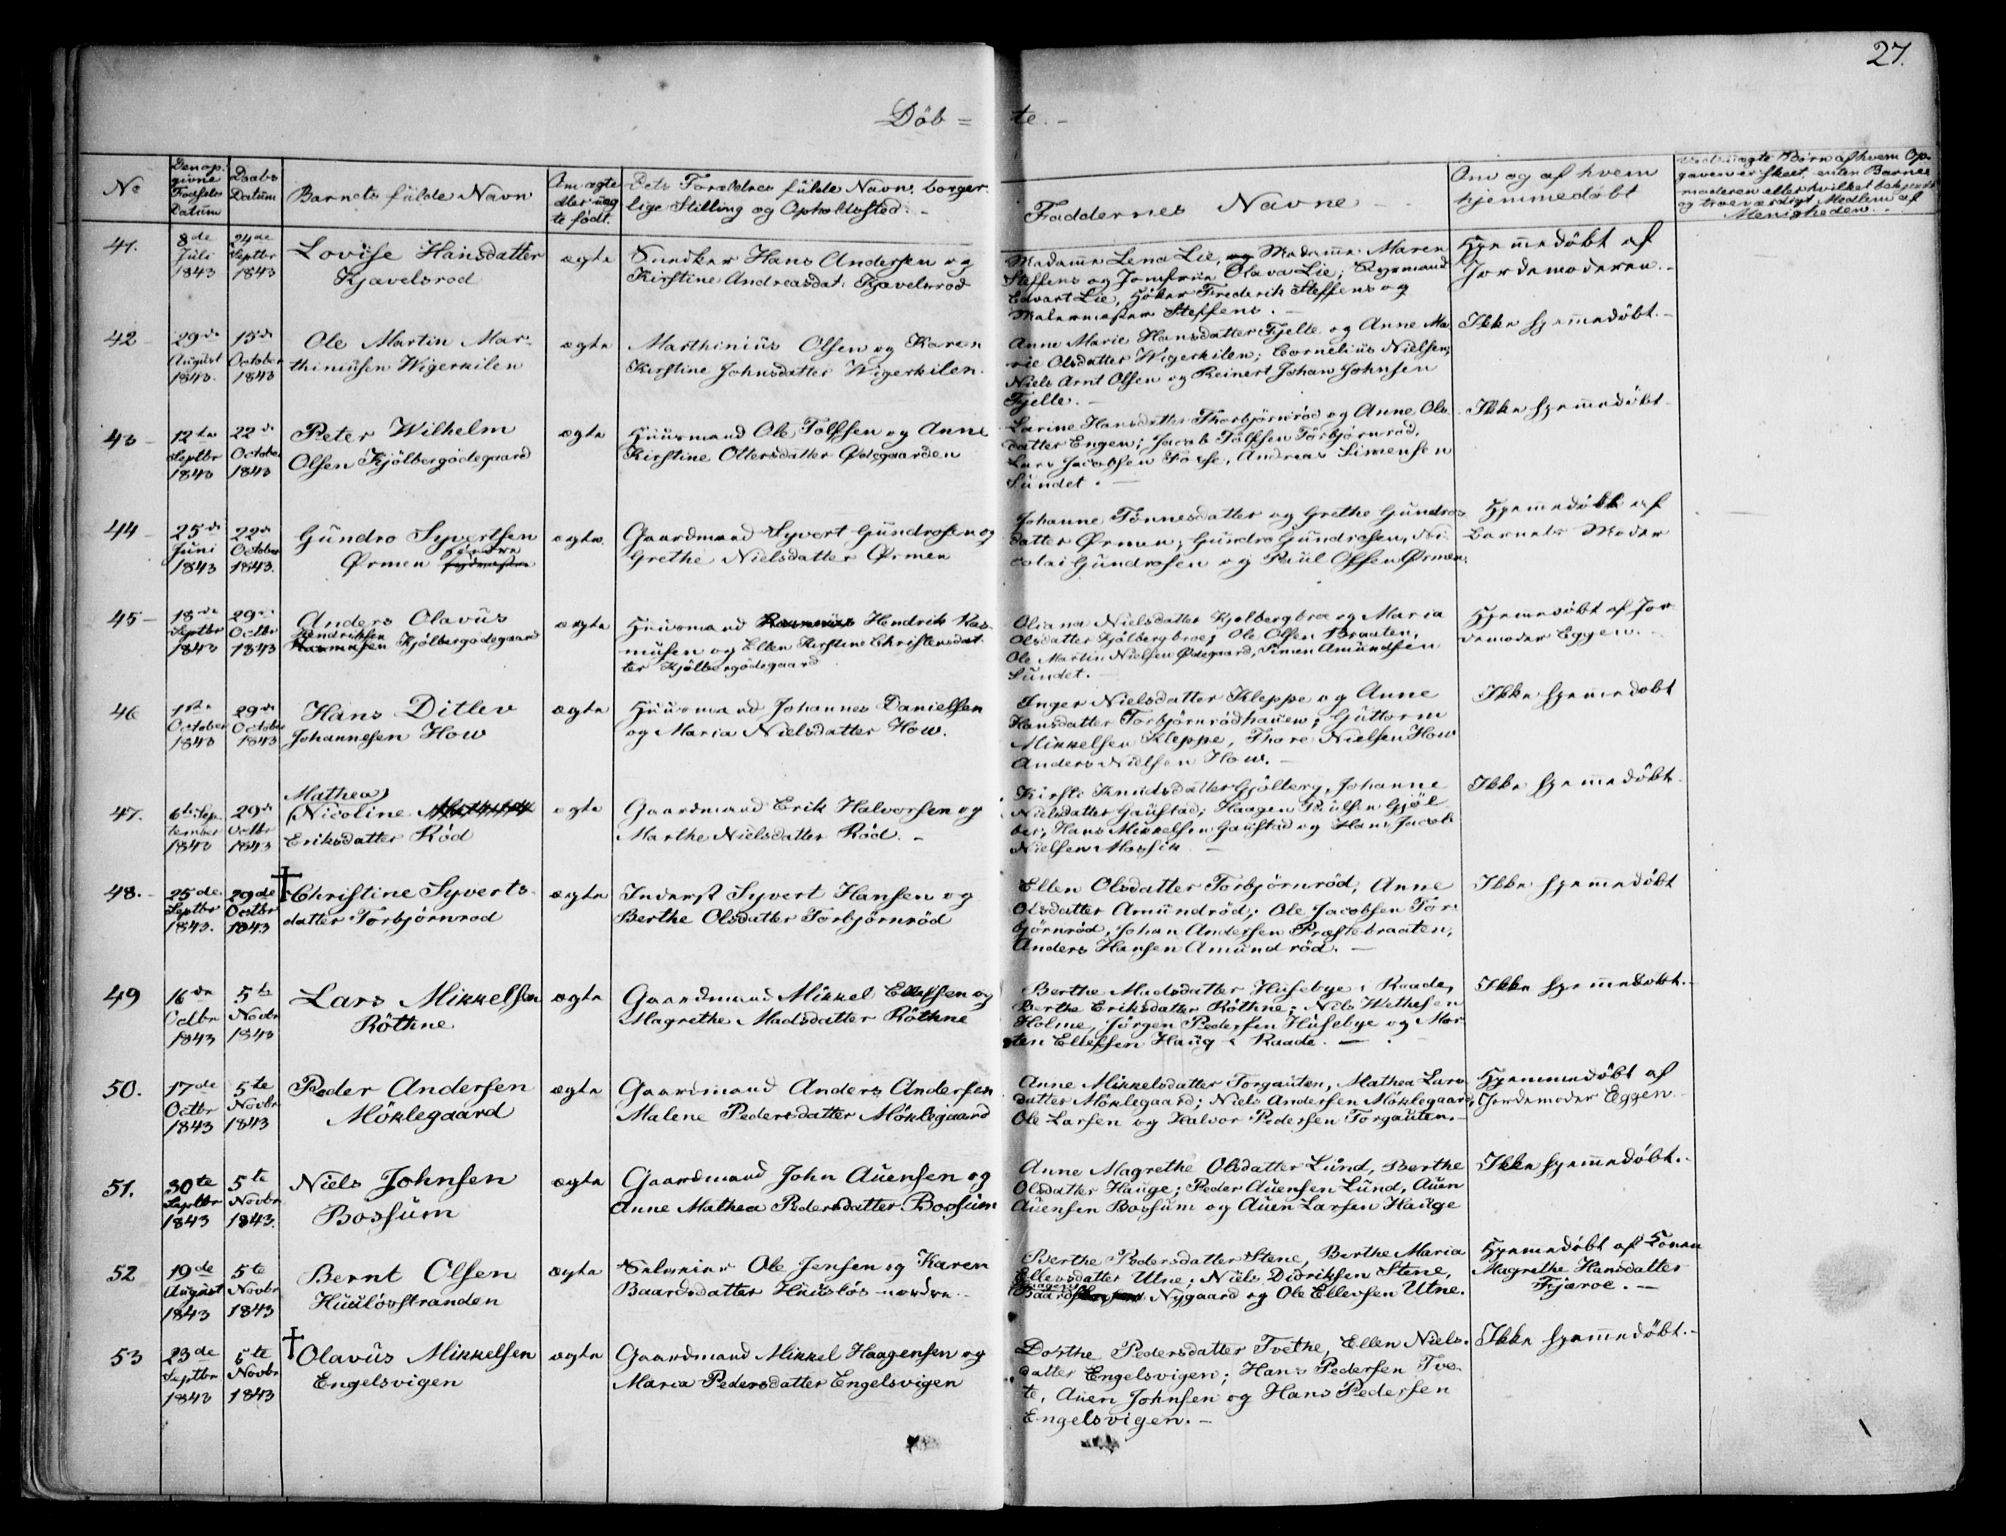 27.
Döb = te. -
No
Den op-
givne
Fødsels
Datum
Daabs
Datum
Barnets fulde Navn
Om ægte
eller uæg
te født.
Dets Forældres fulde Navn, borger-
lige Stilling og Opholdssted. -
Faddernes Navne
Om og af hvem
hjemmedøbt
Ved uægte Børn af hvem Op-
gaven er skeet, enten Barne-
moderen eller hvilket bekjendt
og troeværdigt Medlem af
Menigheden.
41.
8de
Juli
1843
24de
Septbr
1843
Lovise Hansdatter
Kjævelsrod
ægte
Snedker Hans Andersen og
Kirstine Andreasdat: Kjævelsrod
Madame Lena Lie, og Madame Maren
Steffens og Jomfrue Olava Lie; Styrmand
Edvart Lie, Höker Frederik Steffens og
Malermester Steffens. -
Hjemmedöbt af
Jordemoderen. -
42 -
29de
August
1843.
15de
October
1843
Ole Martin Mar-
thiniusen Wigerkilen
ægte
Marthinius Olsen og Karen
Kirstine Johnsdatter Wigerkilen.
Anne Marie Hansdatter Fjelle og Anne Ma
rie Olsdatter Wigerkilen; Cornelius Nielsen,
Niels Arnt Olsen og Reinert Johan Johnsen
Fjelle. -
Ikke hjemmedöbt. -
43 -
12te
Septbr
1843
22de
October
1843
Peter Wilhelm
Olsen Kjölbergödegaard
ægte
Huusmand Ole Tolfsen og Anne
Kirstine Ottersdatter Ødegaarden
Larine Hansdatter Thorbjörnröd og Anne Ols-
datter Engen; Jacob Tolfsen Torbjörnröd,
Lars Jacobsen Fosse, Andreas Simensen
Sundet. -
Ikke hjemmedöbt -
44 -
25de
Juni
1843
22de
October
1843.
Gundro Syvertsen
Ørmen söndre
ægte
Gaardmand Syvert Gundrosen og
Grethe Nielsdatter Ørmen
Johanne Tönnesdatter og Grethe Gundros-
datter Ørmen; Gundro Gundrosen, Ni-
colai Gundrosen og Paul Olsen Ørmen.
Hjemmedöbt af
Barnets Moder
45 -
18de
Septbr
1843
29de
Octbr
1843
Anders Olavus
Hendriksen
Rasmusen Kjölbergödegaard
ægte
Huusmand Rasmus Hendrik Ras-
musen og Ellen Kirstine Christensdat
ter Kjölbergödegaard
Oliana Nielsdatter Kjolbergbroe og Maria
Olsdatter Kjölbergbroe; Ole Olsen Braaten,
Ole Martin Nielsen Ødegaard, Simen Amundsen
Sundet. -
Hjemmedöbt af Jor-
demoder Eggen. -
46
1ste
October
1843
29de
October
1843
Hans Ditlev
Johannesen How
ægte
Huusmand Johannes Danielsen
og Maria Nielsdatter How.
Inger Nielsdatter Kleppe og Anne
Hansdatter Torbjörnrödhauen; Guttorm
Mikkelsen Kleppe, Thore Nielsen How
Anders Nielsen How. -
Ikke hjemmedöbt
47.
6te Sep-
tember
1843
29de
Octbr
1843
Mathea
Nicoline
Eriksdatter Röd
ægte
Gaardmand Erik Halvorsen og
Marthe Nielsdatter Röd. -
Kirsti Knudsdatter Gjölberg, Johanne
Nielsdatter Gaustad; Haagen Paulsen Gjöl
ber, Hans Mikkelsen Gaustad og Hans Jacob
Nielsen Mossik -
Ikke hjemmedöbt -
48. -
25de
Septbr
1843.
29de
Octbr
1843
† Christine Syverts-
datter Torbjörnrod
ægte
Inderst Syvert Hansen og
Berthe Olsdatter Torbjörnröd
Ellen Olsdatter Torbjörnröd, Anne
Olsdatter Amundröd; Ole Jacobsen Tor-
björnröd, Johan Andersen Præstebraaten,
Anders Hansen Amundröd. -
Ikke hjemmedöbt
49
16de
Octbr
1843
5te
Novbr
1843
Lars Mikkelsen
Röthne
ægte
Gaardmand Mikkel Ellefsen og
Magrethe Madsdatter Röthne
Berthe Madsdatter Husebye i Raade,
Berthe Eriksdatter Röthne; Nils Wethesen
Holme, Jörgen Pedersen Husebye og Mor
ten Ellefsen Haug i Raade. -
Ikke hjemmedobt. -
50.
17de
Octbr
1843
5te
Novbr
1843
Peder Andersen
Möklegaard
ægte
Gaardmand Anders Andersen
Malene Pedersdatter Möklegaard
Anne Mikkelsdatter Torgauten, Mathea Lars-
datter Möklegaard; Niels Andersen Möklegaard,
Ole Larsen og Halvor Pedersen Torgauten. -
Hjemmedöbt af
Jordemoder Eggen -
51.
30te
Septbr
1843
5te
Novbr
1843.
Niels Johnsen
Bossum
ægte
Gaardmand John Auensen og
Anne Mathea Pedersdatter Bossum
Anne Magrethe Olsdatter Lund, Berthe
Olsdatter Hauge; Peder Auensen Lund, Auen
Auensen Bossum og Auen Larsen Hauge
Ikke hjemmedöbt. -
52
19de
August
1843
5te
Novbr
1843
Bernt Olsen
Huslösstranden
ægte
Selveier Ole Jensen og Karen
Baardsdatter Huuslös nordre. -
Berthe Pedersdatter Stene, Berthe Maria
Ellevsdatter Utne; Niels Didriksen Stene,
Baard Nygaard og Ole Ellevsen Utne.
Hjemmedöbt af Konen
Magrethe Hansdatter
Fjæroe. -
53
23de
Septbr
1843
5te
Novbr
1843
† Olavus Mikkelsen
Engelsvigen
ægte
Gaardmand Mikkel Haagensen og
Maria Pedersdatter Engelsvigen
Dorthe Pedersdatter Tvethe, Ellen Niels-
datter Engelsvigen; Hans Pedersen Tve-
te, Auen Johnsen og Hans Pedersen
Engelsvigen. -
Ikke hjemmedöbt. -